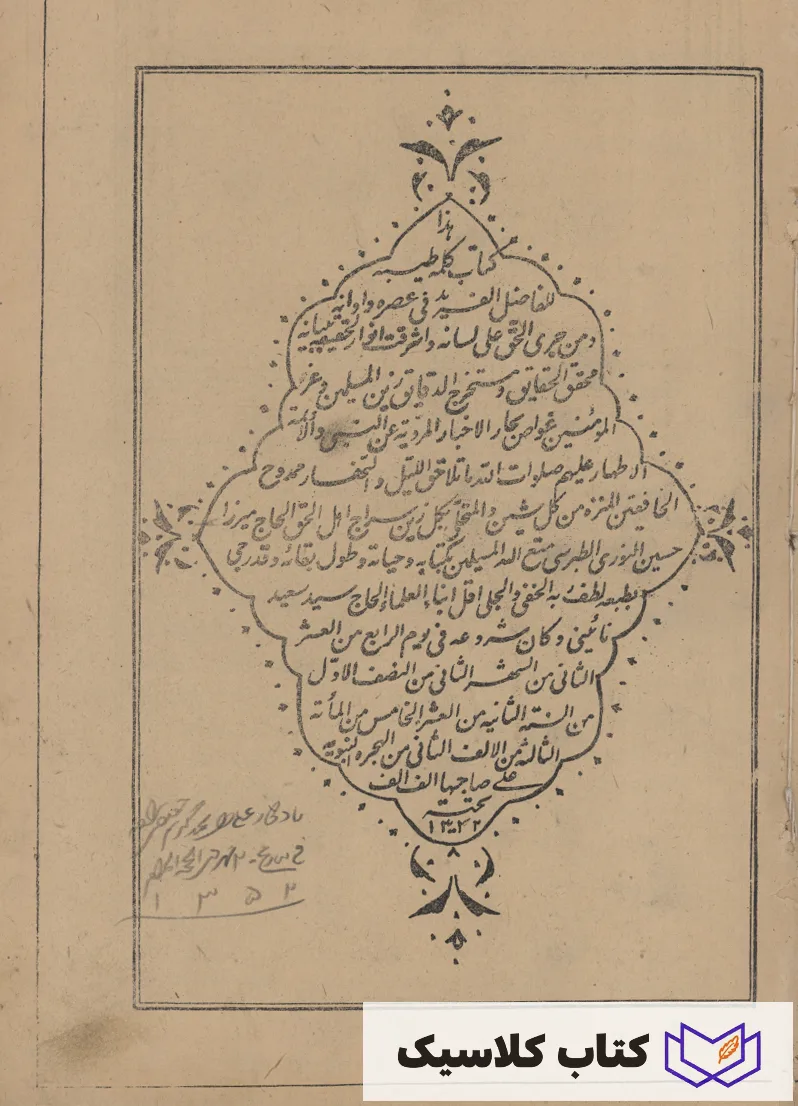 هذا
كتاب كلمه طيبه
للفاضل الفريد في عصره واوانه
ومن جرى الحق على لسانه واشرقت انوار الحقيقه ببيانه
محقق الحقايق ومستخرج الدقايق زين المسلمين وعز
المؤمنين غواص بحار الاخبار المروية عن النبي والأئمة
الاطهار عليهم صلوات الله ما تلاحق الليل والنهار ممدوح
الخافقين المنزه من كل شين والمتحلي بكل زين سراج اهل الحق الحاج ميرزا
حسين النوري الطبرسي متع الله المسلمين بكتابه وحياته وطول بقائه وقد رجى
بطبعه لطف ربه الخفي والجلي اقل ابناء العلماء الحاج سيد سعيد
نائيني وكان شروعه في يوم الرابع من العشر
الثاني من الشهر الثاني من النصف الاول
من السنة الثانيه من العشر الخامس من المأة
الثالثة من الالف الثاني من الهجره النبويه
على صاحبها الف الف
تحيته
يادگار
في
۱۳۵۲
کتاب کلاسیک